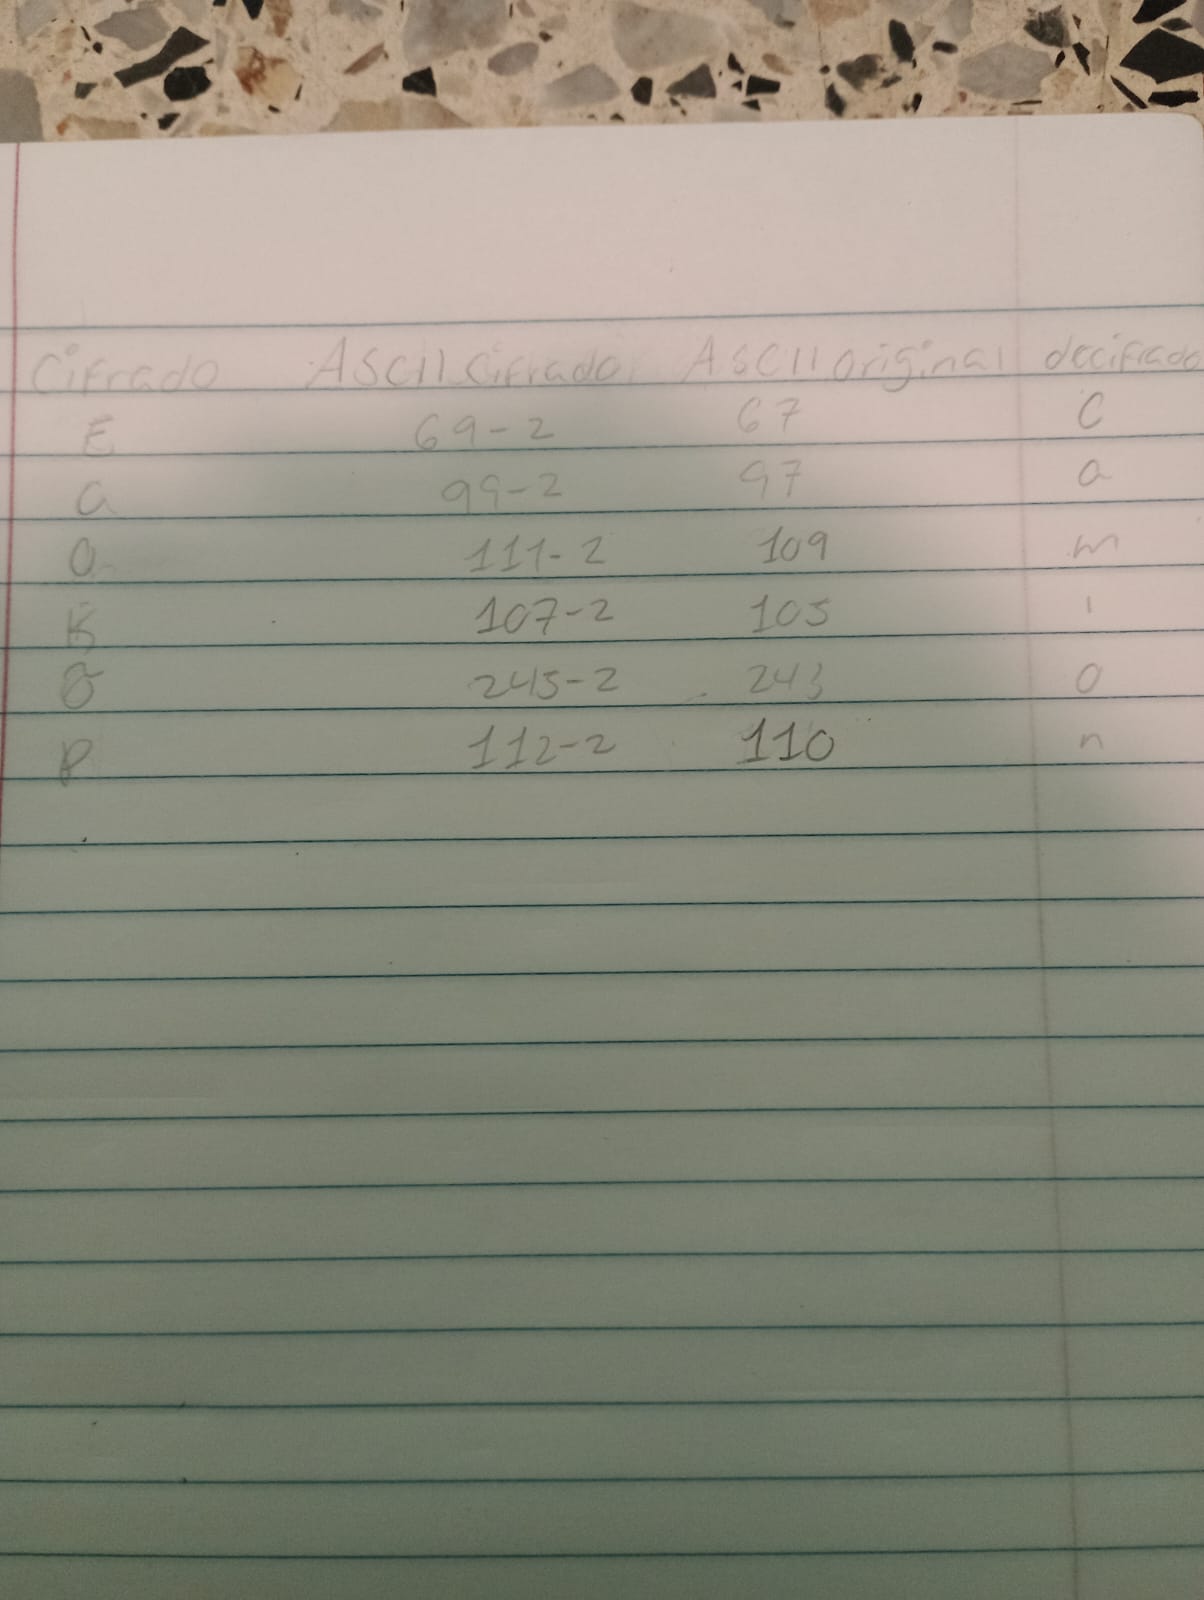 Cifrado ASCII Cifrado ASCII original decifrado
E 69-2 67 C
a 99-2 97 a
O 111-2 109 m
K 107-2 105 i
õ 245-2 243 o
P 112-2 110 n